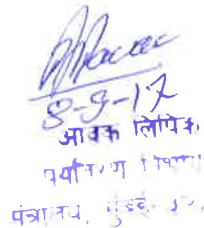 8-9-17
आवक लिपिक,
पर्यावरण विभाग
मंत्रालय, मुंबई-